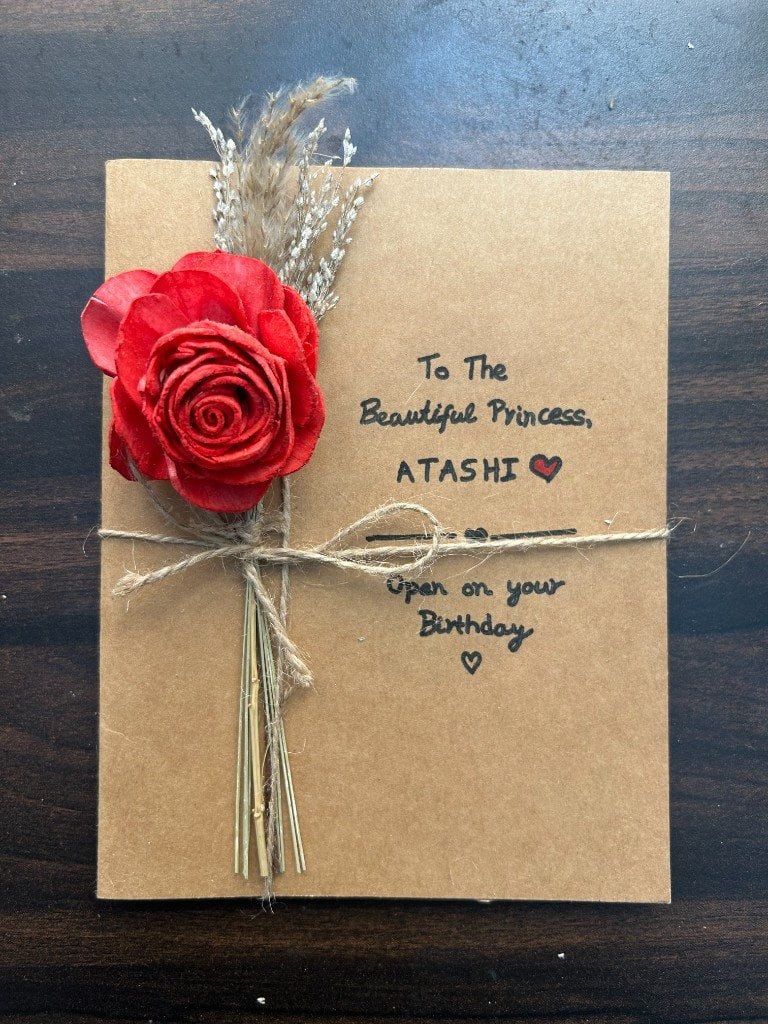 To The
Beautiful Princess,
ATASHI
Open on your
Birthday